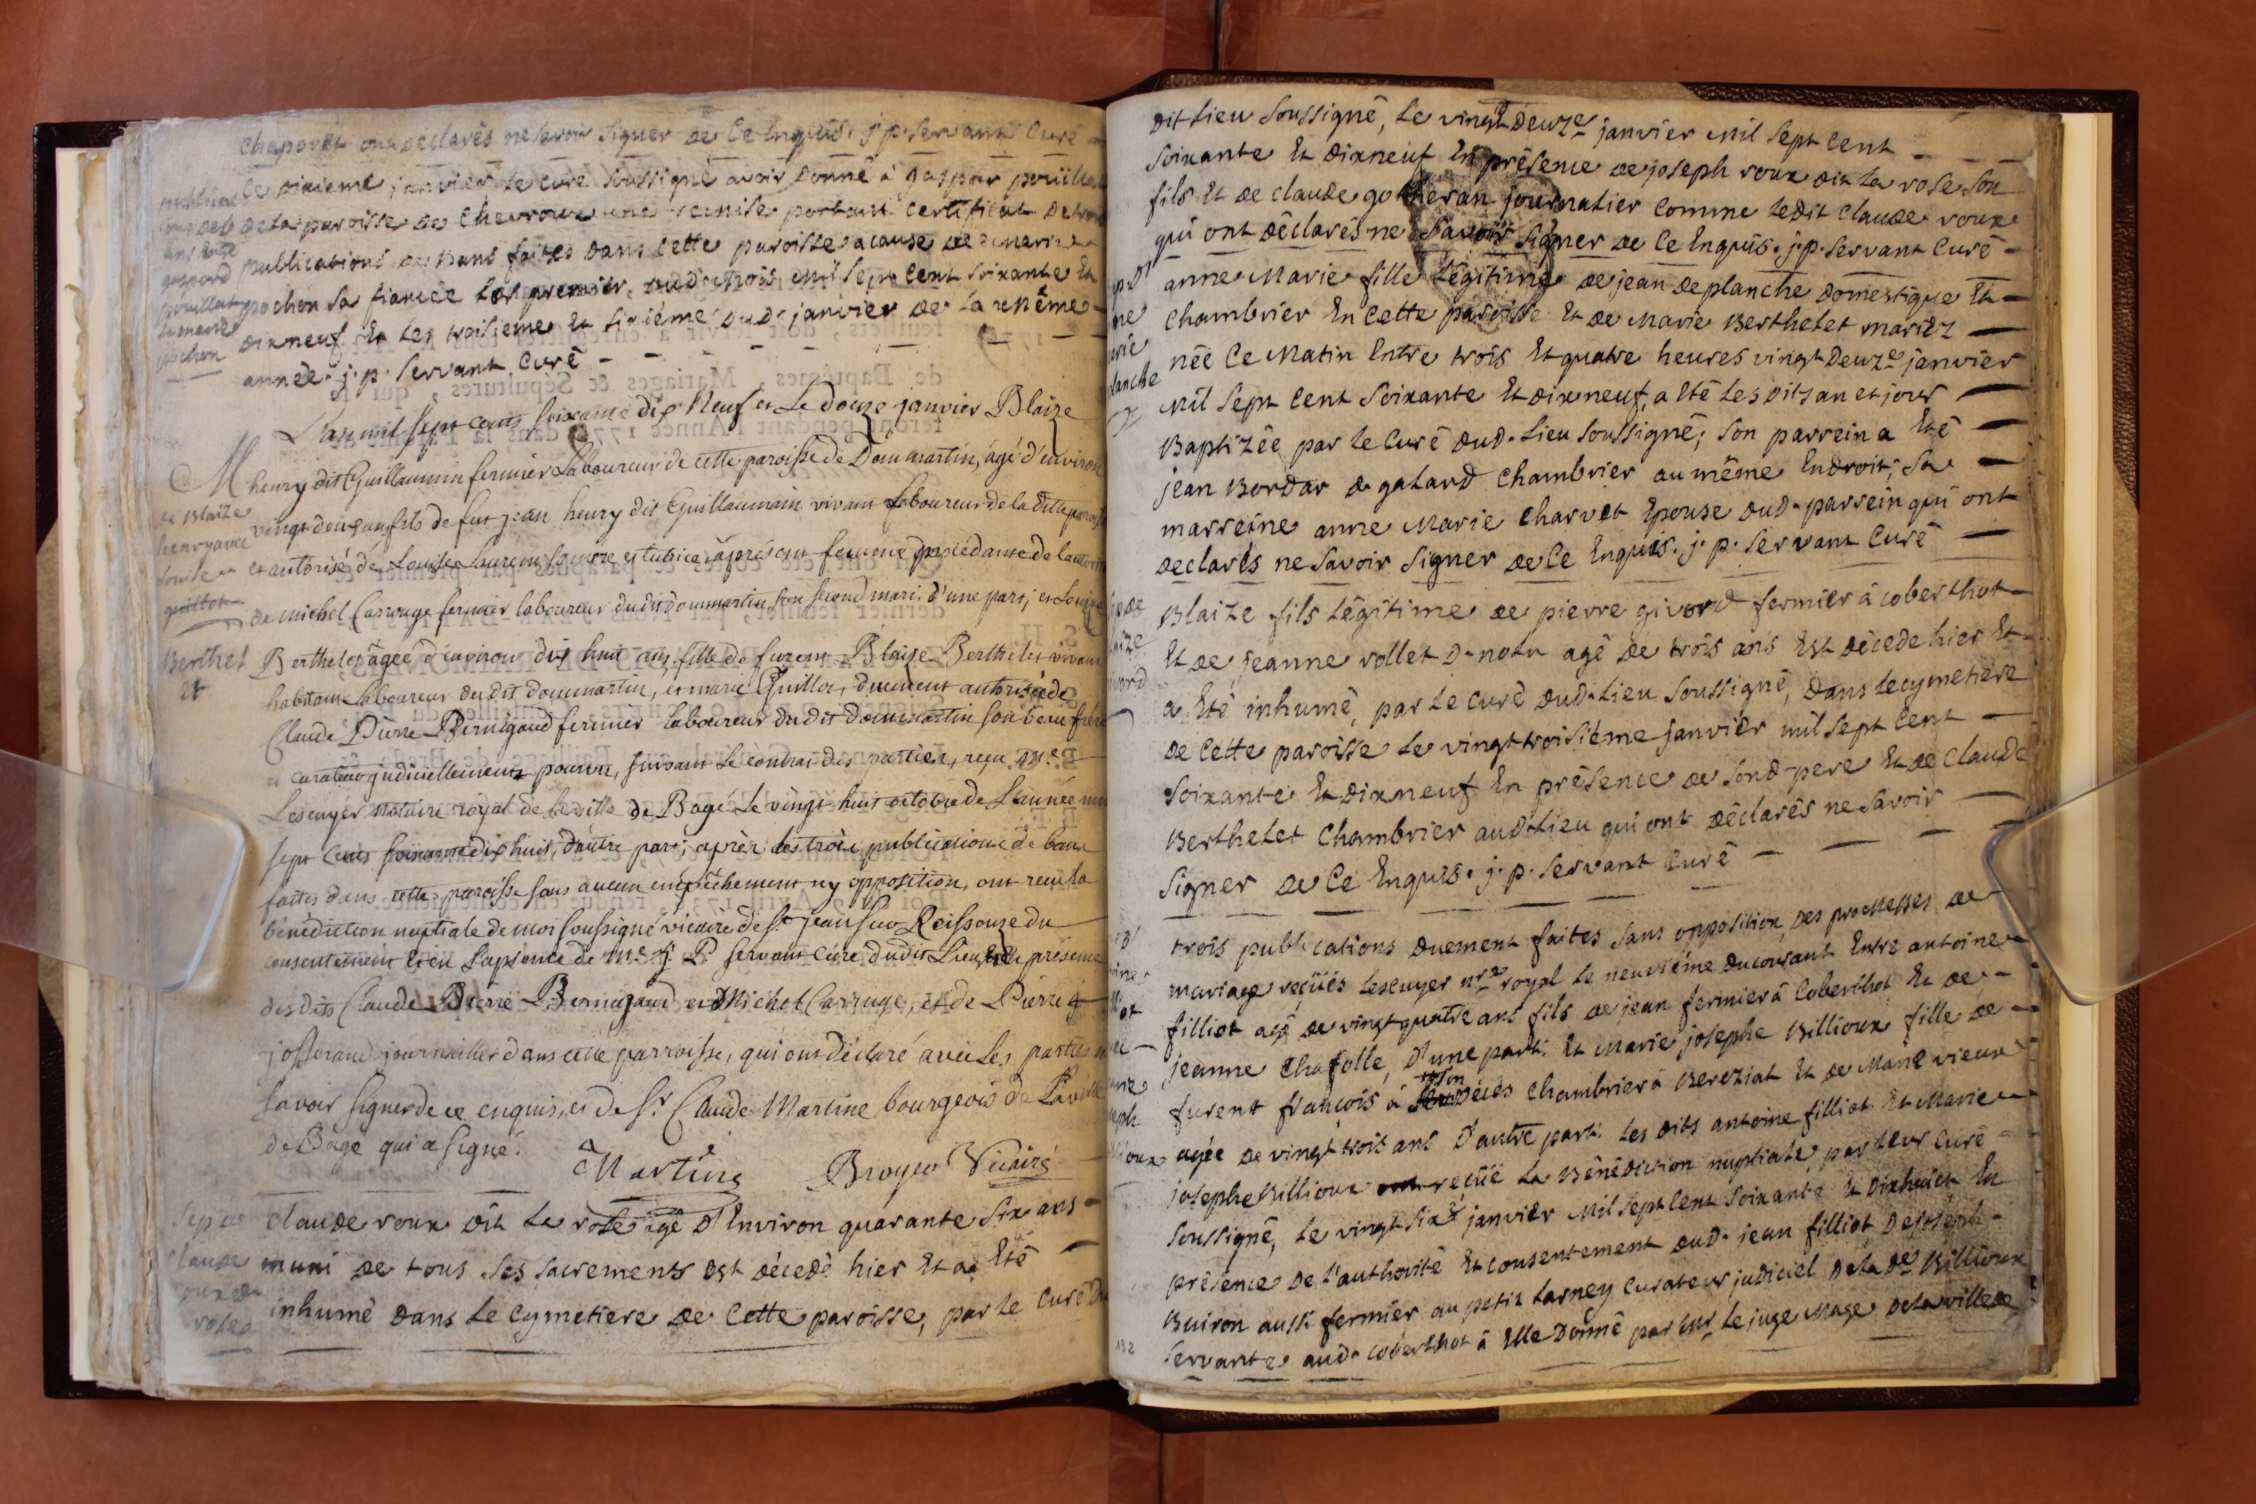 chaporet ont déclarés ne savoir signer de ce Enquis. j. p. servant Curé
Ce dixieme janvier le curé soussigné avoir donné à gaspar
de la paroisse de Chevroux une remise portant certificat de trois
publications de bans faites dans cette paroisse a cause de marie
pochon sa fiancée les premier, dud. mois mil sept cent soixante Et
dixneuf Et les troisieme Et sixiéme dud. janvier de la même
année. j. p. servant Curé
L'an mil sept cents soixante dix Neuf et Le douze janvier Blaize
henry dit Guillaumin fermier Laboureur de cette paroisse de Dommartin, âgé d'environ
vingt deux ans fils de fut jean henry dit Guillaumin vivant Laboureur de la ditte paroisse
et autorisé de Louise Laurent sa mere et tutrice à present femme procédante de l'autorité
de michel Carruge fermier laboureur dudit Dommartin son second mari d'une part; et Louise
Berthelet âgée d'environ dix huit ans, fille de furent Blaise Berthelet vivant
habitant Laboureur dudit dommartin, et marie Guillot, duement autorisée de
Claude Pierre Bernigaud fermier laboureur dudit dommartin son beau frère
curateur judiciellement pourvu, suivant Le contrat des parties, reçu Me.
Lescuyer Notaire royal de la ville de Bagé Le vingt huit octobre de L'année mil
sept Cents soixante dix huit, d'autre part; après les trois publications de bans
faites dans cette paroisse sans aucun empêchement ny opposition, ont recu la
bénédiction nuptiale de moi soussigné vicaire de St. jean sur Reissouze du
consentement et en la présence de Me. J. P. servant Curé dudit Lieu, et en présence
des dits Claude Pierre Bernigaud et Michel Carruge, et de Pierre
josserand journaillier dans cette parroisse, qui ont déclaré avec les parties ne
savoir signer de ce enquis, et de Sr. Claude Martine bourgeois de La ville
de Bagé qui a signé.
Martine Broyer Vicaire
Claude roux dit La rose agé d'Environ quarante six ans
muni de tous ses sacrements est décedé hier Et a Eté
inhumé dans le cymetiere de cette paroisse, par le curé du
publica
gaspard
pouillat
marie
pochon
M
de Blaize
henry avec
Louise
guillot
Berthet
Sep. de
Claude
roux dit
rose
dit Lieu soussigné, Le vingt deuze. janvier mil sept cent
soixante Et dixneuf En présence de joseph roux dit La rose son
fils Et de claude gotheran journalier comme Ledit Claude roux
qui ont déclarés ne savoir signer de ce Enquis. j. p. servant Curé
anne Marie fille légitime de jean deplanche domestique Et
chambrier En cette paroisse Et de Marie Berthelet mariez
née ce Matin Entre trois Et quatre heures vingt deuze. janvier
mil sept cent soixante Et dixneuf, a Eté les dits an et jour
Baptizée par le Curé dud. Lieu soussigné; son parrein a Eté
jean Bordar de galard chambrier au même Endroit; sa
marreine anne Marie charvet Epouse dud. parrein qui ont
declarés ne savoir signer de ce Enquis. j. p. servant Curé
Blaize fils légitime de pierre givord fermier à coberthot
Et de jeanne vollet agé de trois ans Est décede hier Et
a Eté inhumé, par le curé dud. Lieu soussigné, dans le cymetiere
de cette paroisse le vingt troisiéme janvier mil sept cent
soixante Et dixneuf En présence de sond. pere Et de Claude
Berthelet chambrier aud. Lieu qui ont déclarés ne savoir
signer de ce Enquis. j. p. servant Curé
trois publications duement faites sans opposition, des promesses de
mariage reçües Lescuyer nre royal le neuviéme du courant Entre antoine
filliot agé de vingt quatre ans fils de jean fermier à coberthot Et de
jeanne chafolle, d'une part. Et Marie josephe Billioux fille de
furent françois à son décès chambrier à Bereziat Et de Marie vieux
agée de vingt trois ans d'autre part. Les dits antoine filliot Et Marie
josephe Billioux reçüe la Bénédiction nuptiale, par leur curé
soussigné, le vingt sixe. janvier mil sept cent soixante Et dixhuict En
présence de l'authorité Et consentement dud. jean filliot, de joseph
Buiron aussi fermier au petit Larney curateur judiciel de la de. Billioux
servante aud. coberthot à Elle Donné par mr. le juge mage de la ville de